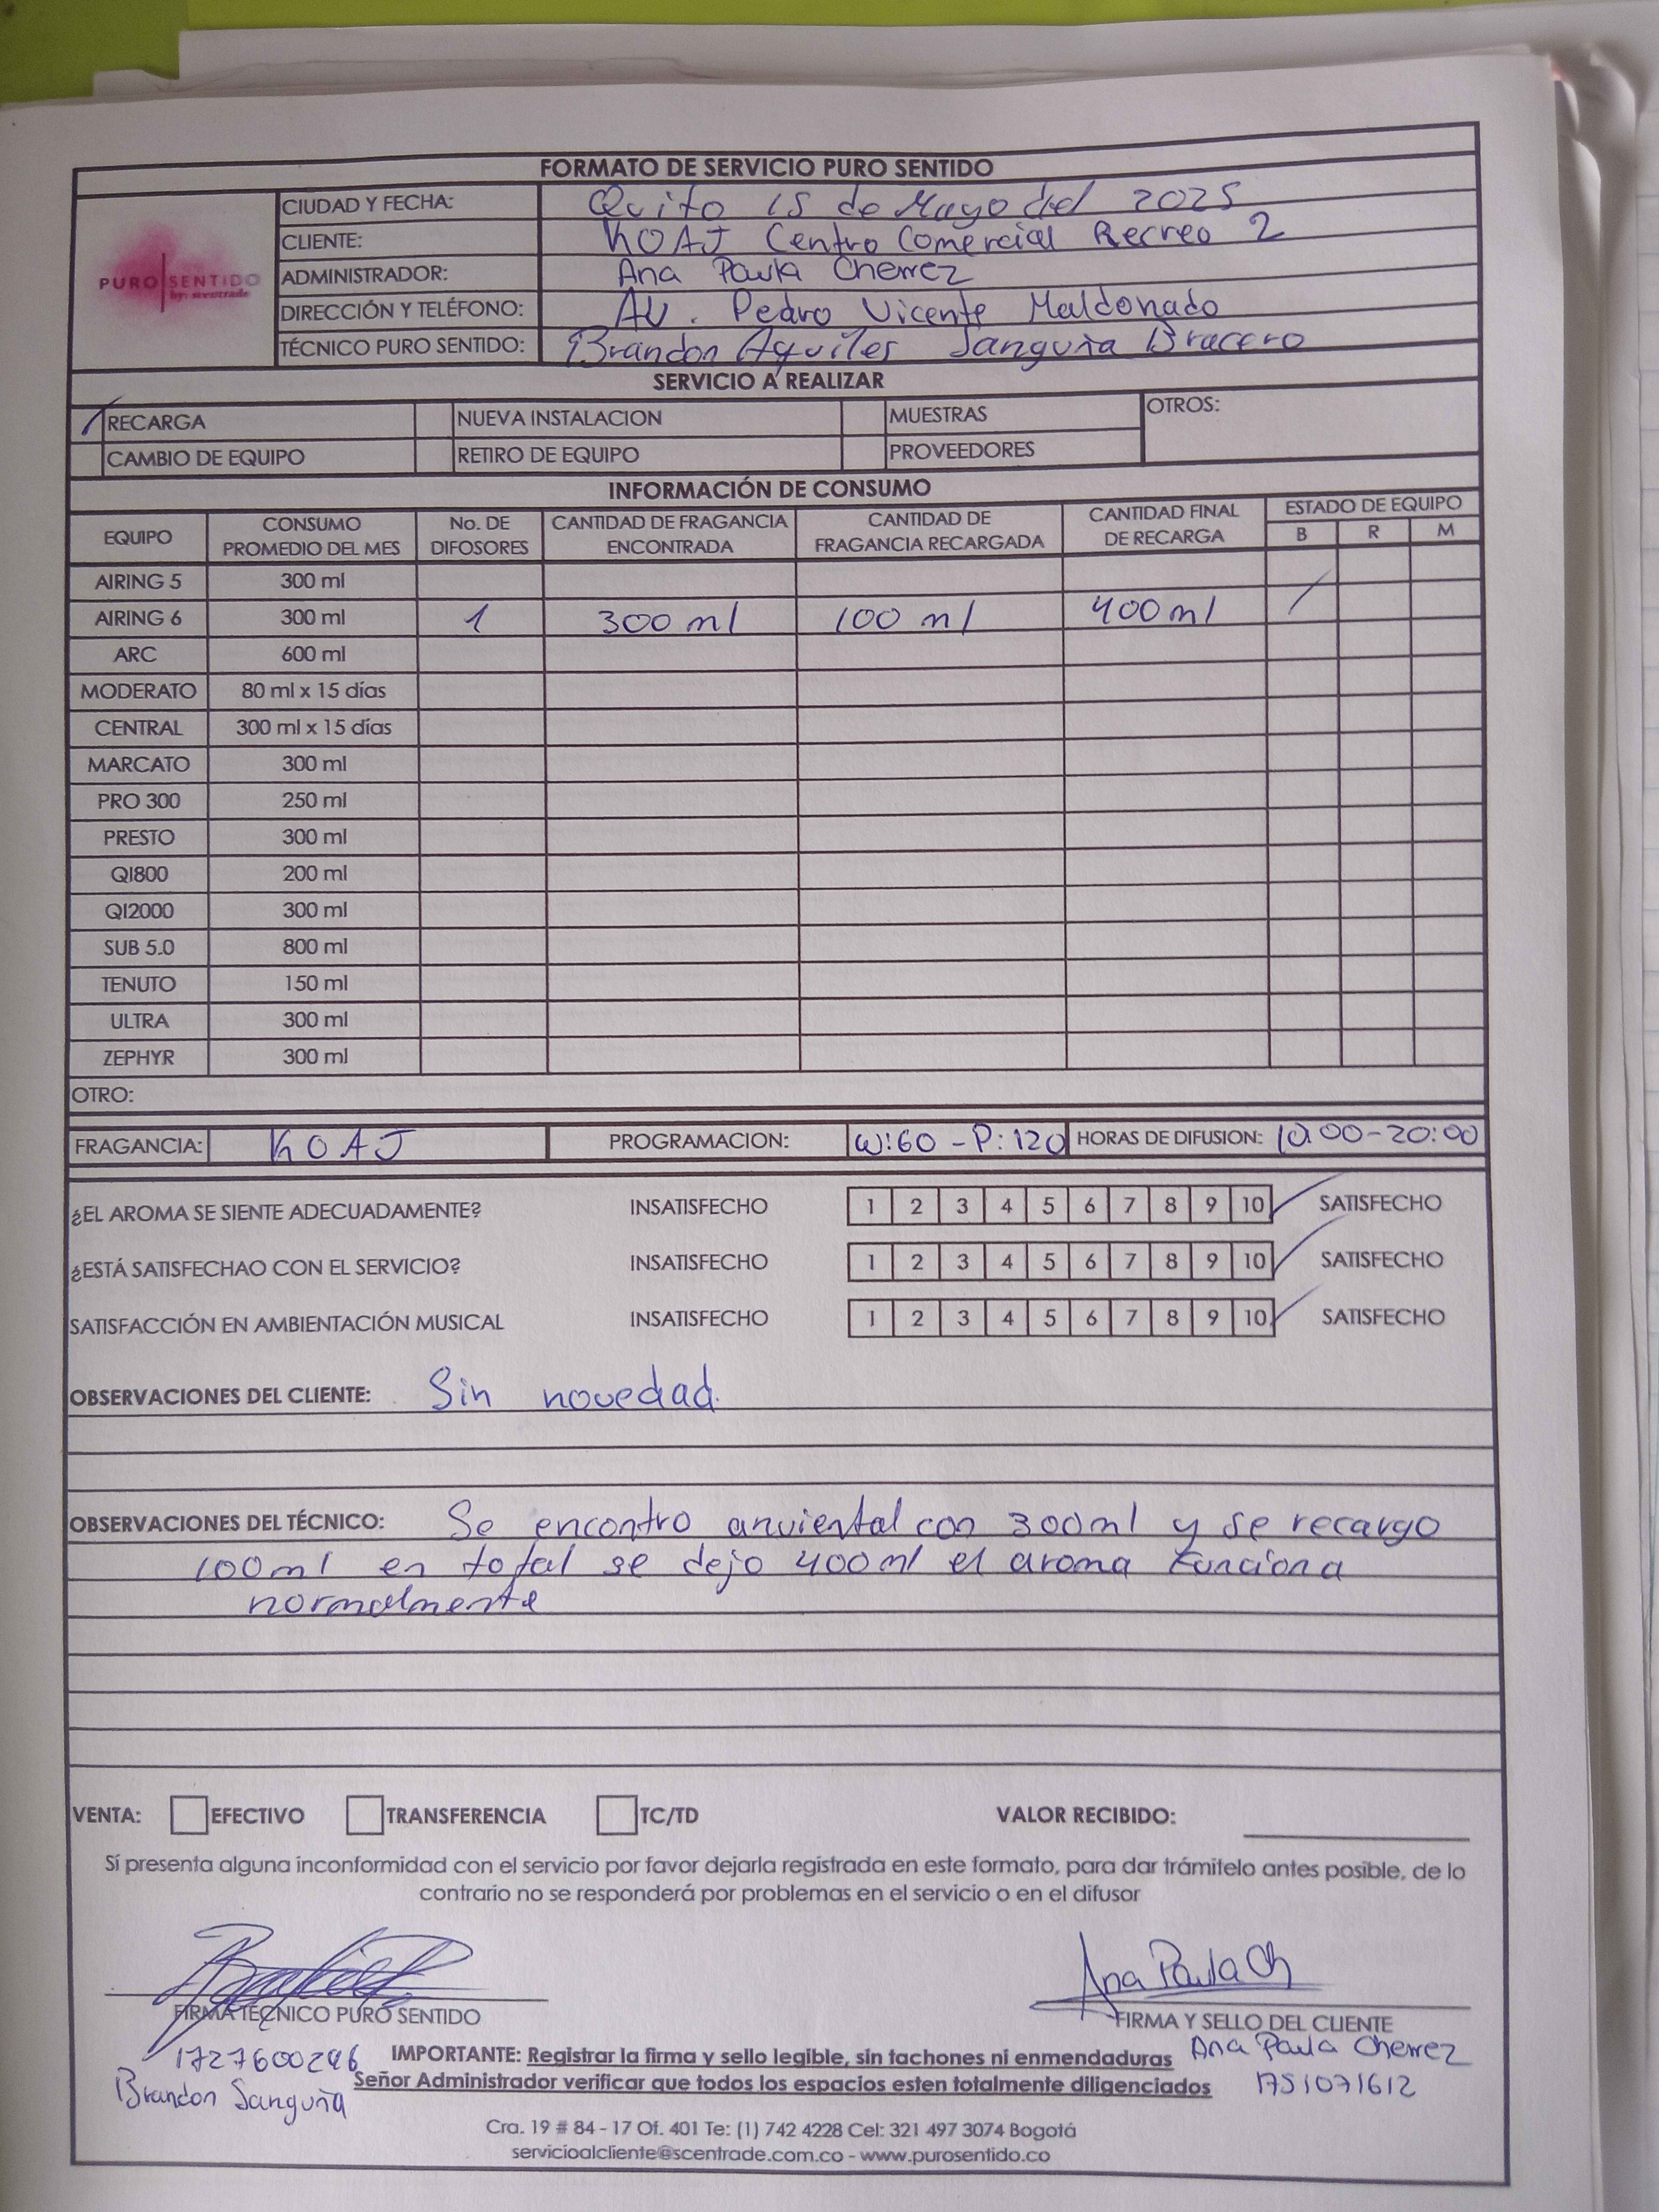 FORMATO DE SERVICIO PURO SENTIDO
PURO SENTIDO
by: scentrade
CIUDAD Y FECHA: Quito 15 de Mayo del 2025
CLIENTE: KOAJ Centro Comercial Recreo 2
ADMINISTRADOR: Ana Paula Cherrez
DIRECCIÓN Y TELÉFONO: Av. Pedro Vicente Maldonado
TÉCNICO PURO SENTIDO: Brandon Aquiles Sanguña Bracero
SERVICIO A REALIZAR
RECARGA NUEVA INSTALACION MUESTRAS OTROS:
CAMBIO DE EQUIPO RETIRO DE EQUIPO PROVEEDORES
INFORMACIÓN DE CONSUMO
EQUIPO CONSUMO PROMEDIO DEL MES No. DE DIFOSORES CANTIDAD DE FRAGANCIA ENCONTRADA CANTIDAD DE FRAGANCIA RECARGADA CANTIDAD FINAL DE RECARGA ESTADO DE EQUIPO
B R M
AIRING 5 300 ml
AIRING 6 300 ml 1 300 ml 100 ml 400 ml /
ARC 600 ml
MODERATO 80 ml x 15 días
CENTRAL 300 ml x 15 días
MARCATO 300 ml
PRO 300 250 ml
PRESTO 300 ml
QI800 200 ml
QI2000 300 ml
SUB 5.0 800 ml
TENUTO 150 ml
ULTRA 300 ml
ZEPHYR 300 ml
OTRO:
FRAGANCIA: KOAJ PROGRAMACION: W:60 - P:120 HORAS DE DIFUSION: 10:00-20:00
¿EL AROMA SE SIENTE ADECUADAMENTE? INSATISFECHO 1 2 3 4 5 6 7 8 9 10 SATISFECHO
¿ESTÁ SATISFECHAO CON EL SERVICIO? INSATISFECHO 1 2 3 4 5 6 7 8 9 10 SATISFECHO
SATISFACCIÓN EN AMBIENTACIÓN MUSICAL INSATISFECHO 1 2 3 4 5 6 7 8 9 10 SATISFECHO
OBSERVACIONES DEL CLIENTE: Sin novedad.
OBSERVACIONES DEL TÉCNICO: Se encontro anviental con 300ml y se recargo
100ml en total se dejo 400ml el aroma funciona
normalmente
VENTA: EFECTIVO TRANSFERENCIA TC/TD VALOR RECIBIDO:
Sí presenta alguna inconformidad con el servicio por favor dejarla registrada en este formato, para dar trámitelo antes posible, de lo
contrario no se responderá por problemas en el servicio o en el difusor
Ana Paula Ch
FIRMA TECNICO PURO SENTIDO FIRMA Y SELLO DEL CLIENTE
1727600296 IMPORTANTE: Registrar la firma y sello legible, sin tachones ni enmendaduras Ana Paula Cherrez
Brandon Sanguña Señor Administrador verificar que todos los espacios esten totalmente diligenciados 1751071612
Cra. 19 # 84 - 17 Of. 401 Te: (1) 742 4228 Cel: 321 497 3074 Bogotá
servicioalcliente@scentrade.com.co - www.purosentido.co